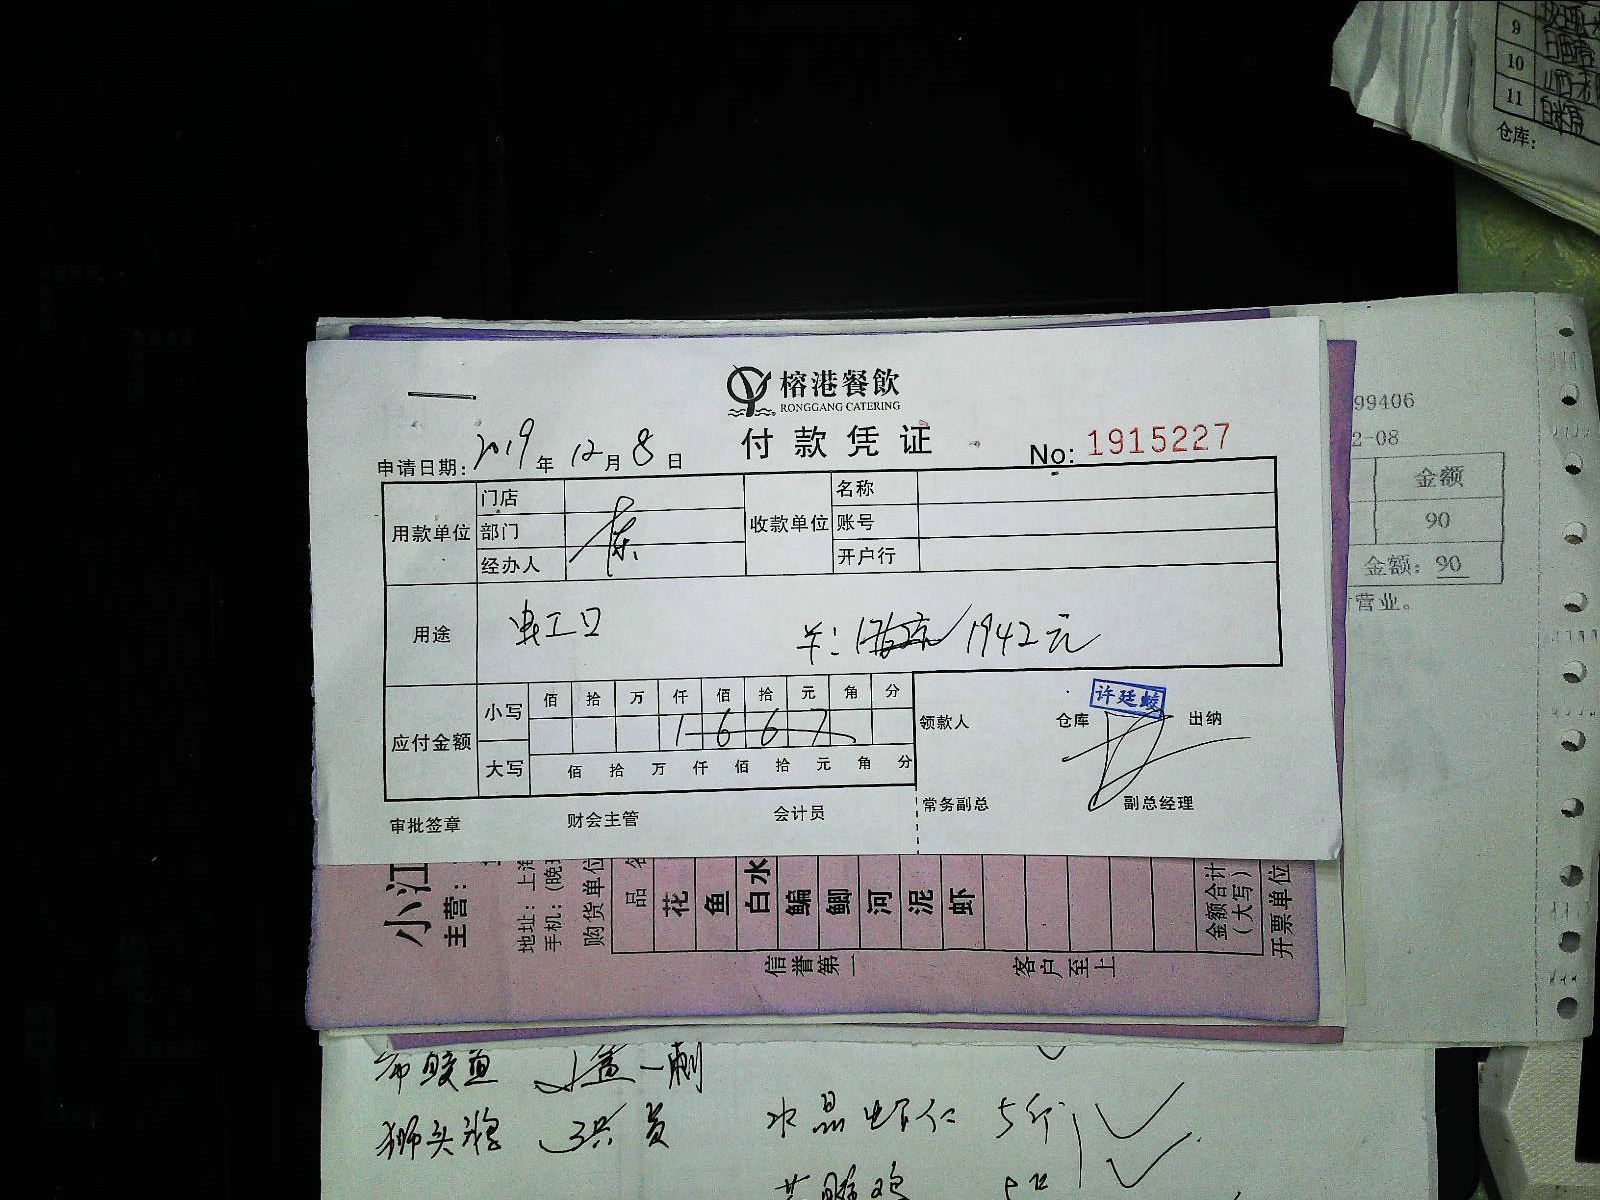 9
10
11
仓库:
99406
2-08
金额
90
金额: 90
营业。
榕港餐飲
RONGGANG CATERING
付款凭证
No: 1915227
申请日期: 2019年12月8日
用款单位 门店 收款单位 名称
部门 账号
经办人 开户行
用途 1942元
应付金额 小写 佰 拾 万 仟 佰 拾 元 角 分
1 6 6 7
大写 佰 拾 万 仟 佰 拾 元 角 分
领款人 仓库 许廷蛟 出纳
常务副总 副总经理
审批签章 财会主管 会计员
小江
主营:
地址: 上海
手机: (晚
购货单位
品名
花
鱼
白水
鳊
鲫
河
泥
虾
金额合计
(大写)
开票单位
信誉第一
客户至上
水晶虾仁 5斤